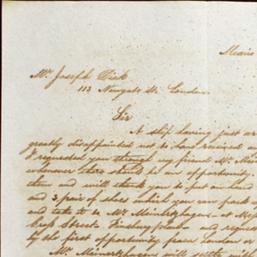 Messrs
Mr. Joseph Dick
113 Newgate St. London
Sir
A ship having just ar
greatly disappointed not to have received an
I requested you through my friend Mr. Mein
whenever there should be an opportunity.
them and will thank you to put in hand
and 3 pair of shoes which you can pack u
and take to Mr. Meinertzhagen at Mess
Street Finsbury place and request
by the first opportunity from London or
Mr. Meinertzhagen will settle with